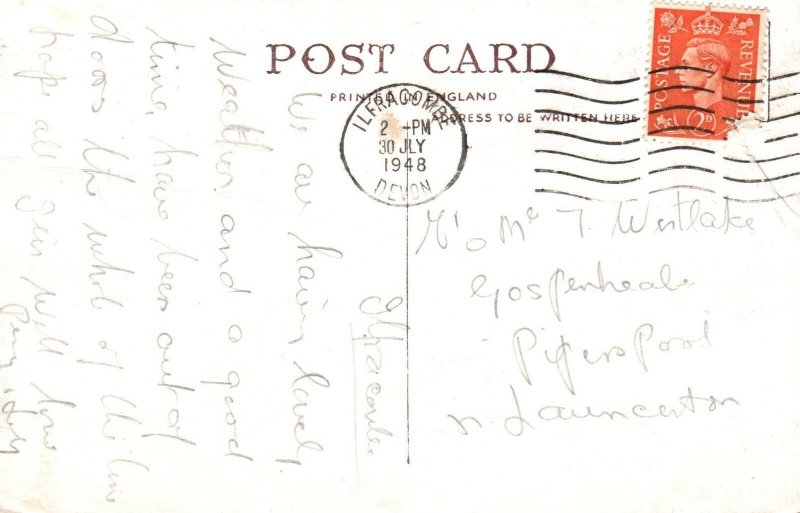 POST CARD
PRINTED IN ENGLAND
ADDRESS TO BE WRITTEN HERE
ILFRACOMBE
2 -PM
30 JLY
1948
DEVON
POSTAGE
REVENUE
2D
Ilfracombe
We are having lovely
weather and a good
time, have been out of
doors the whole of the time
hope all is well love
T. Westlake
Pipers Pool
n. Launceston